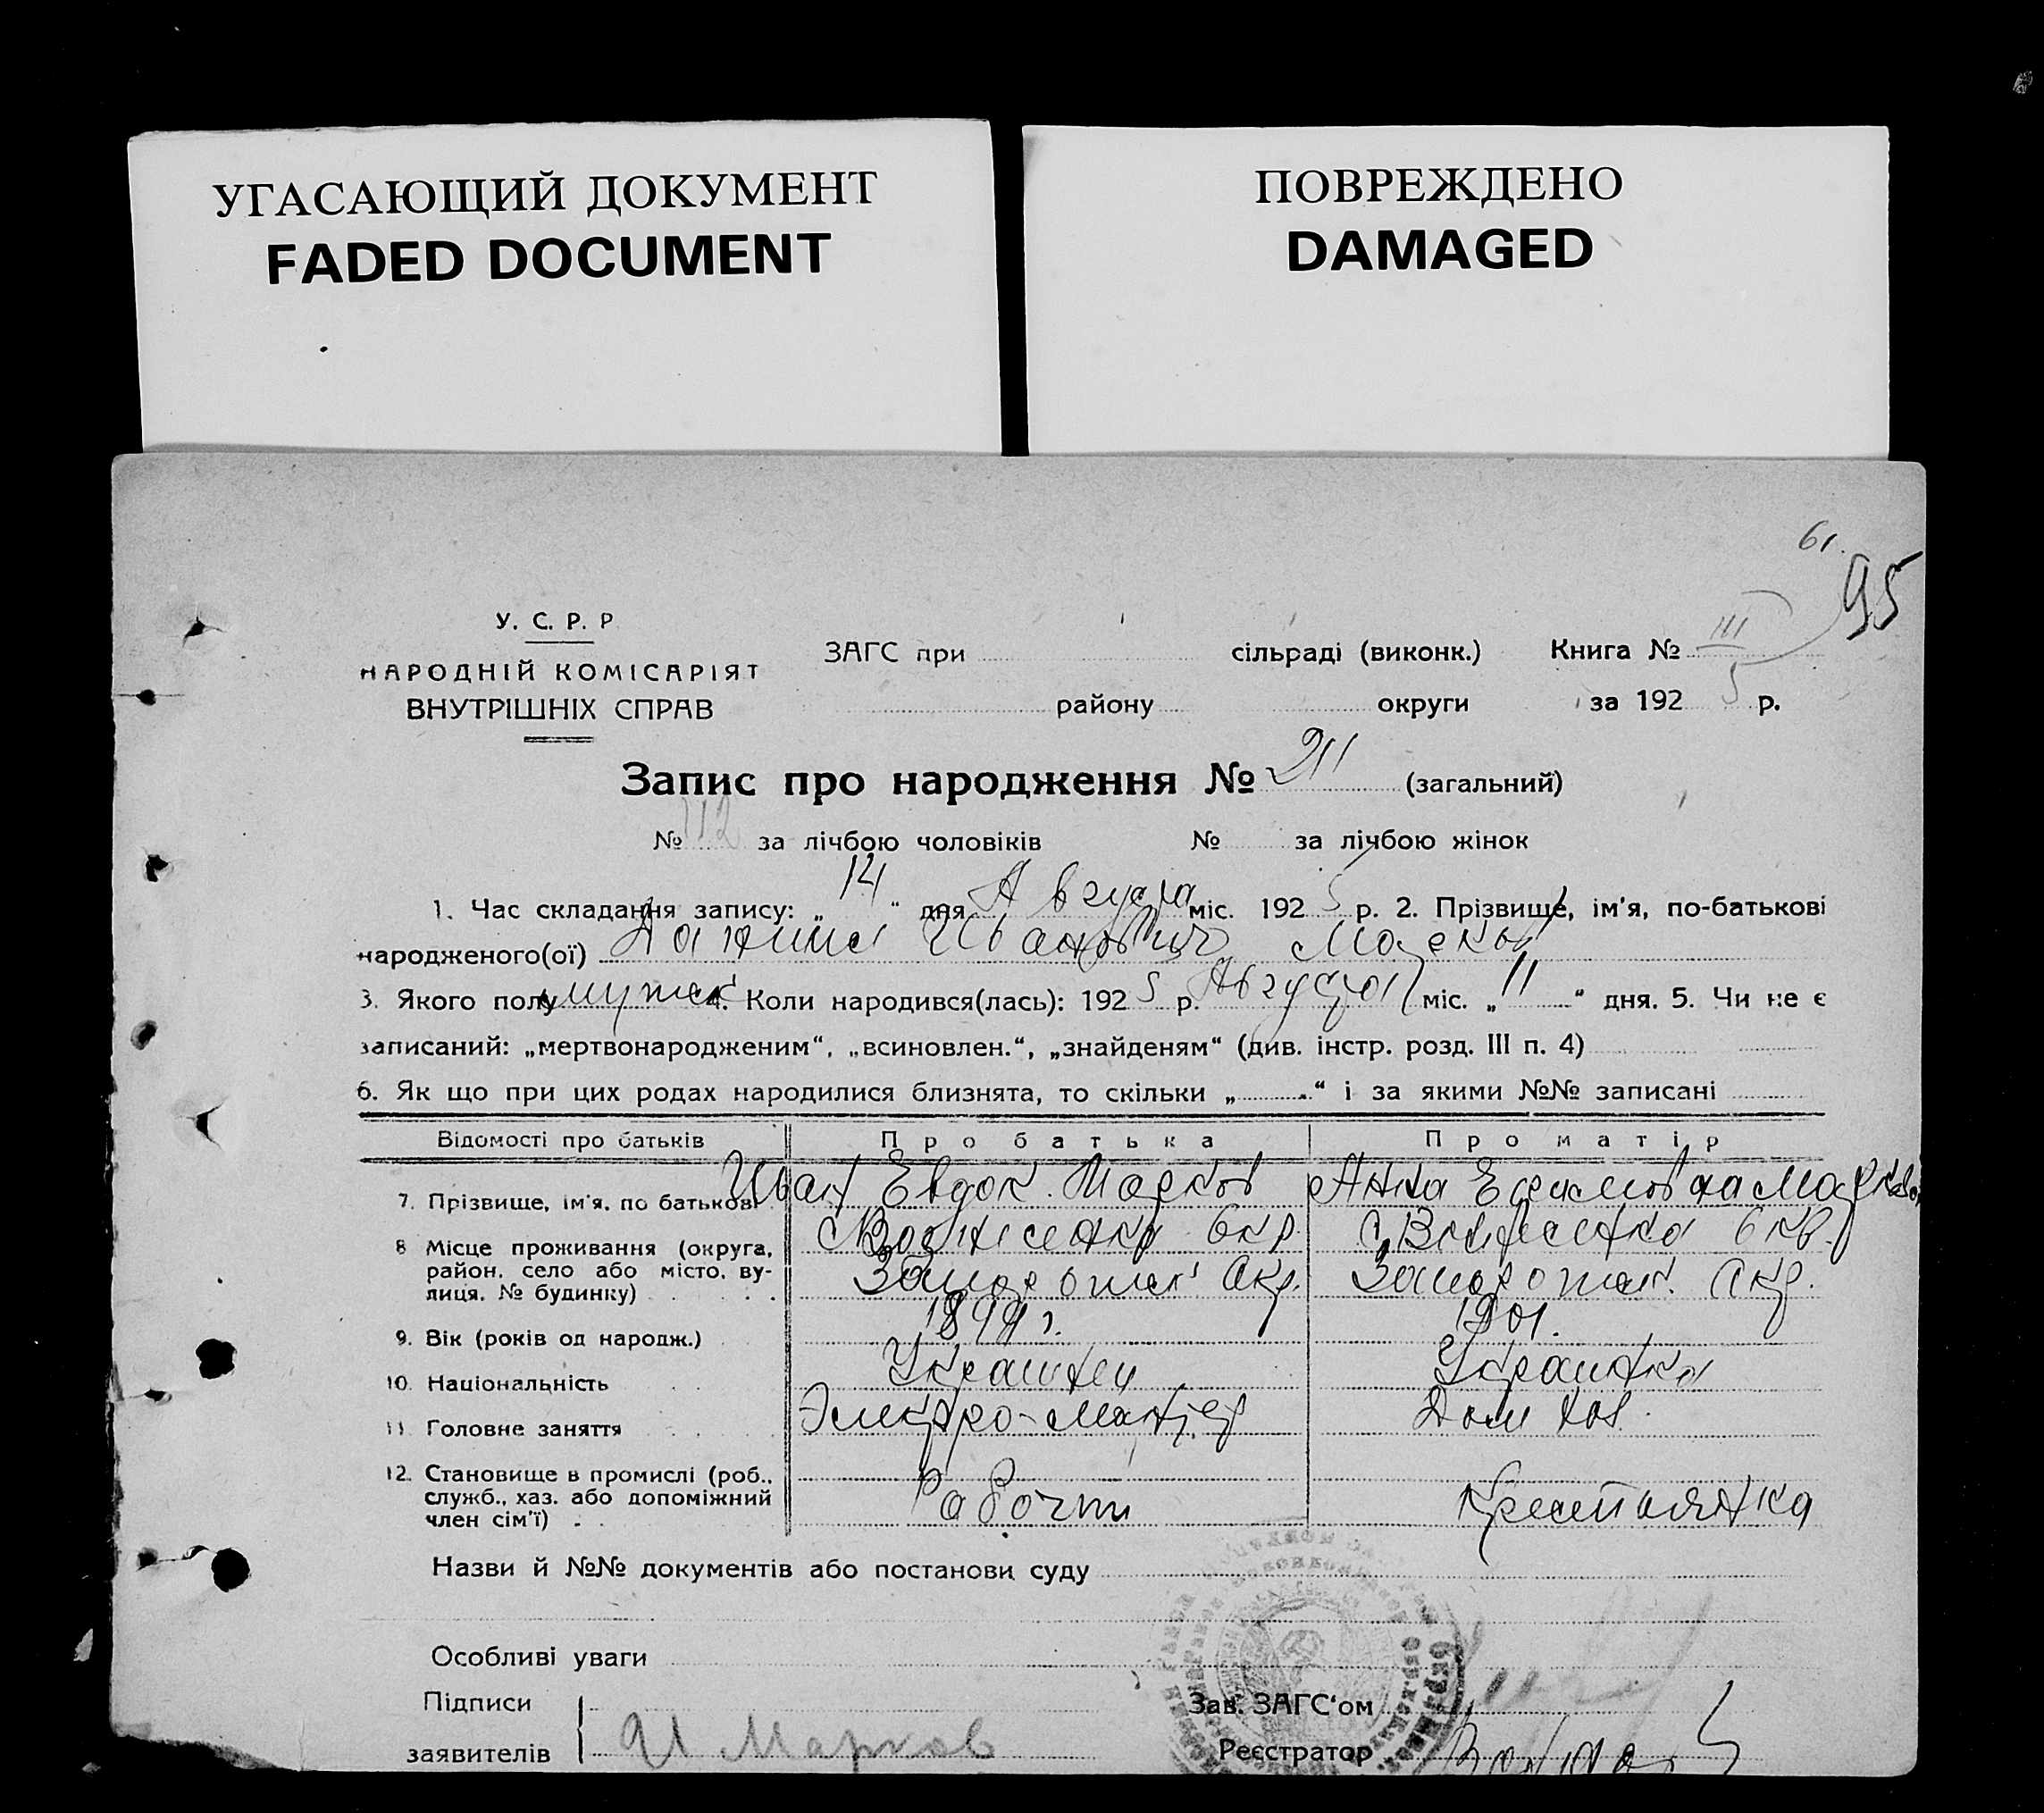 УГАСАЮЩИЙ ДОКУМЕНТ
FADED DOCUMENT
ПОВРЕЖДЕНО
DAMAGED
61.
95
У. С. Р. Р
НАРОДНІЙ КОМІСАРІЯТ
ВНУТРІШНІХ СПРАВ
ЗАГС при сільраді (виконк.) Книга № III
району округи за 1925 р.
Запис про народження № 211 (загальний)
№ 112 за лічбою чоловіків № за лічбою жінок
1. Час складання запису: „14“ дня Августа міс. 1925 р. 2. Прізвище, ім'я, по-батькові
народженого(ої) Иванович Марков
3. Якого полу мужск 4. Коли народився(лась): 1925 р. Августа міс. „11“ дня. 5. Чи не є
записаний: „мертвонародженим“, „всиновлен.“, „знайденям“ (див. інстр. розд. III п. 4)
6. Як що при цих родах народилися близнята, то скільки „ “ і за якими №№ записані
Відомості про батьків Про батька Про матір
7. Прізвище, ім'я, по батькові Иван Евдок. Марков Анна Ефимовна Маркова
8 Місце проживання (округа, с Вознесенка с. Вознесенка
район, село або місто, ву- Запорожск. Окр. Запорожск. Окр.
лиця, № будинку)
9. Вік (років од народж.) 1899 г. 1901.
10. Національність Украинец Украинка
11. Головне заняття Электро-монтер Дом хоз.
12. Становище в промислі (роб.,
служб., хаз. або допоміжний Рабочий Крестьянка
член сім'ї)
Назви й №№ документів або постанови суду
Особливі уваги
Підписи Зав. ЗАГС'ом
заявителів И Марков Реєстратор